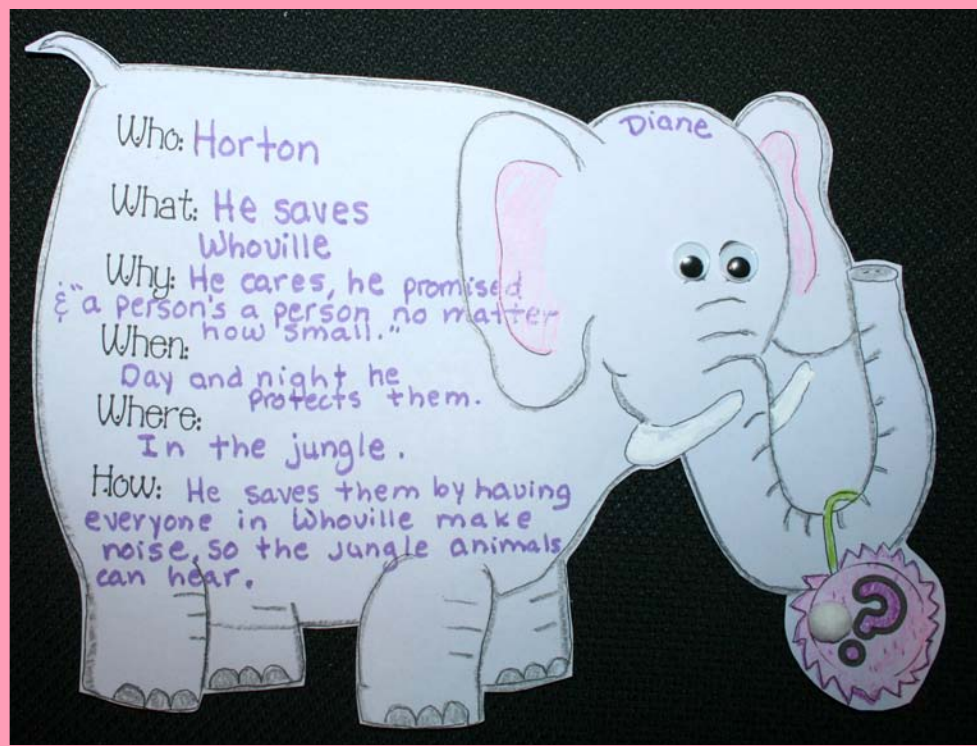 Diane
Who: Horton
What: He saves
Whoville
Why: He cares, he promised
& "a person's a person no matter
how small."
When:
Day and night he
protects them.
Where:
In the jungle.
How: He saves them by having
everyone in Whoville make
noise, so the jungle animals
can hear.
?